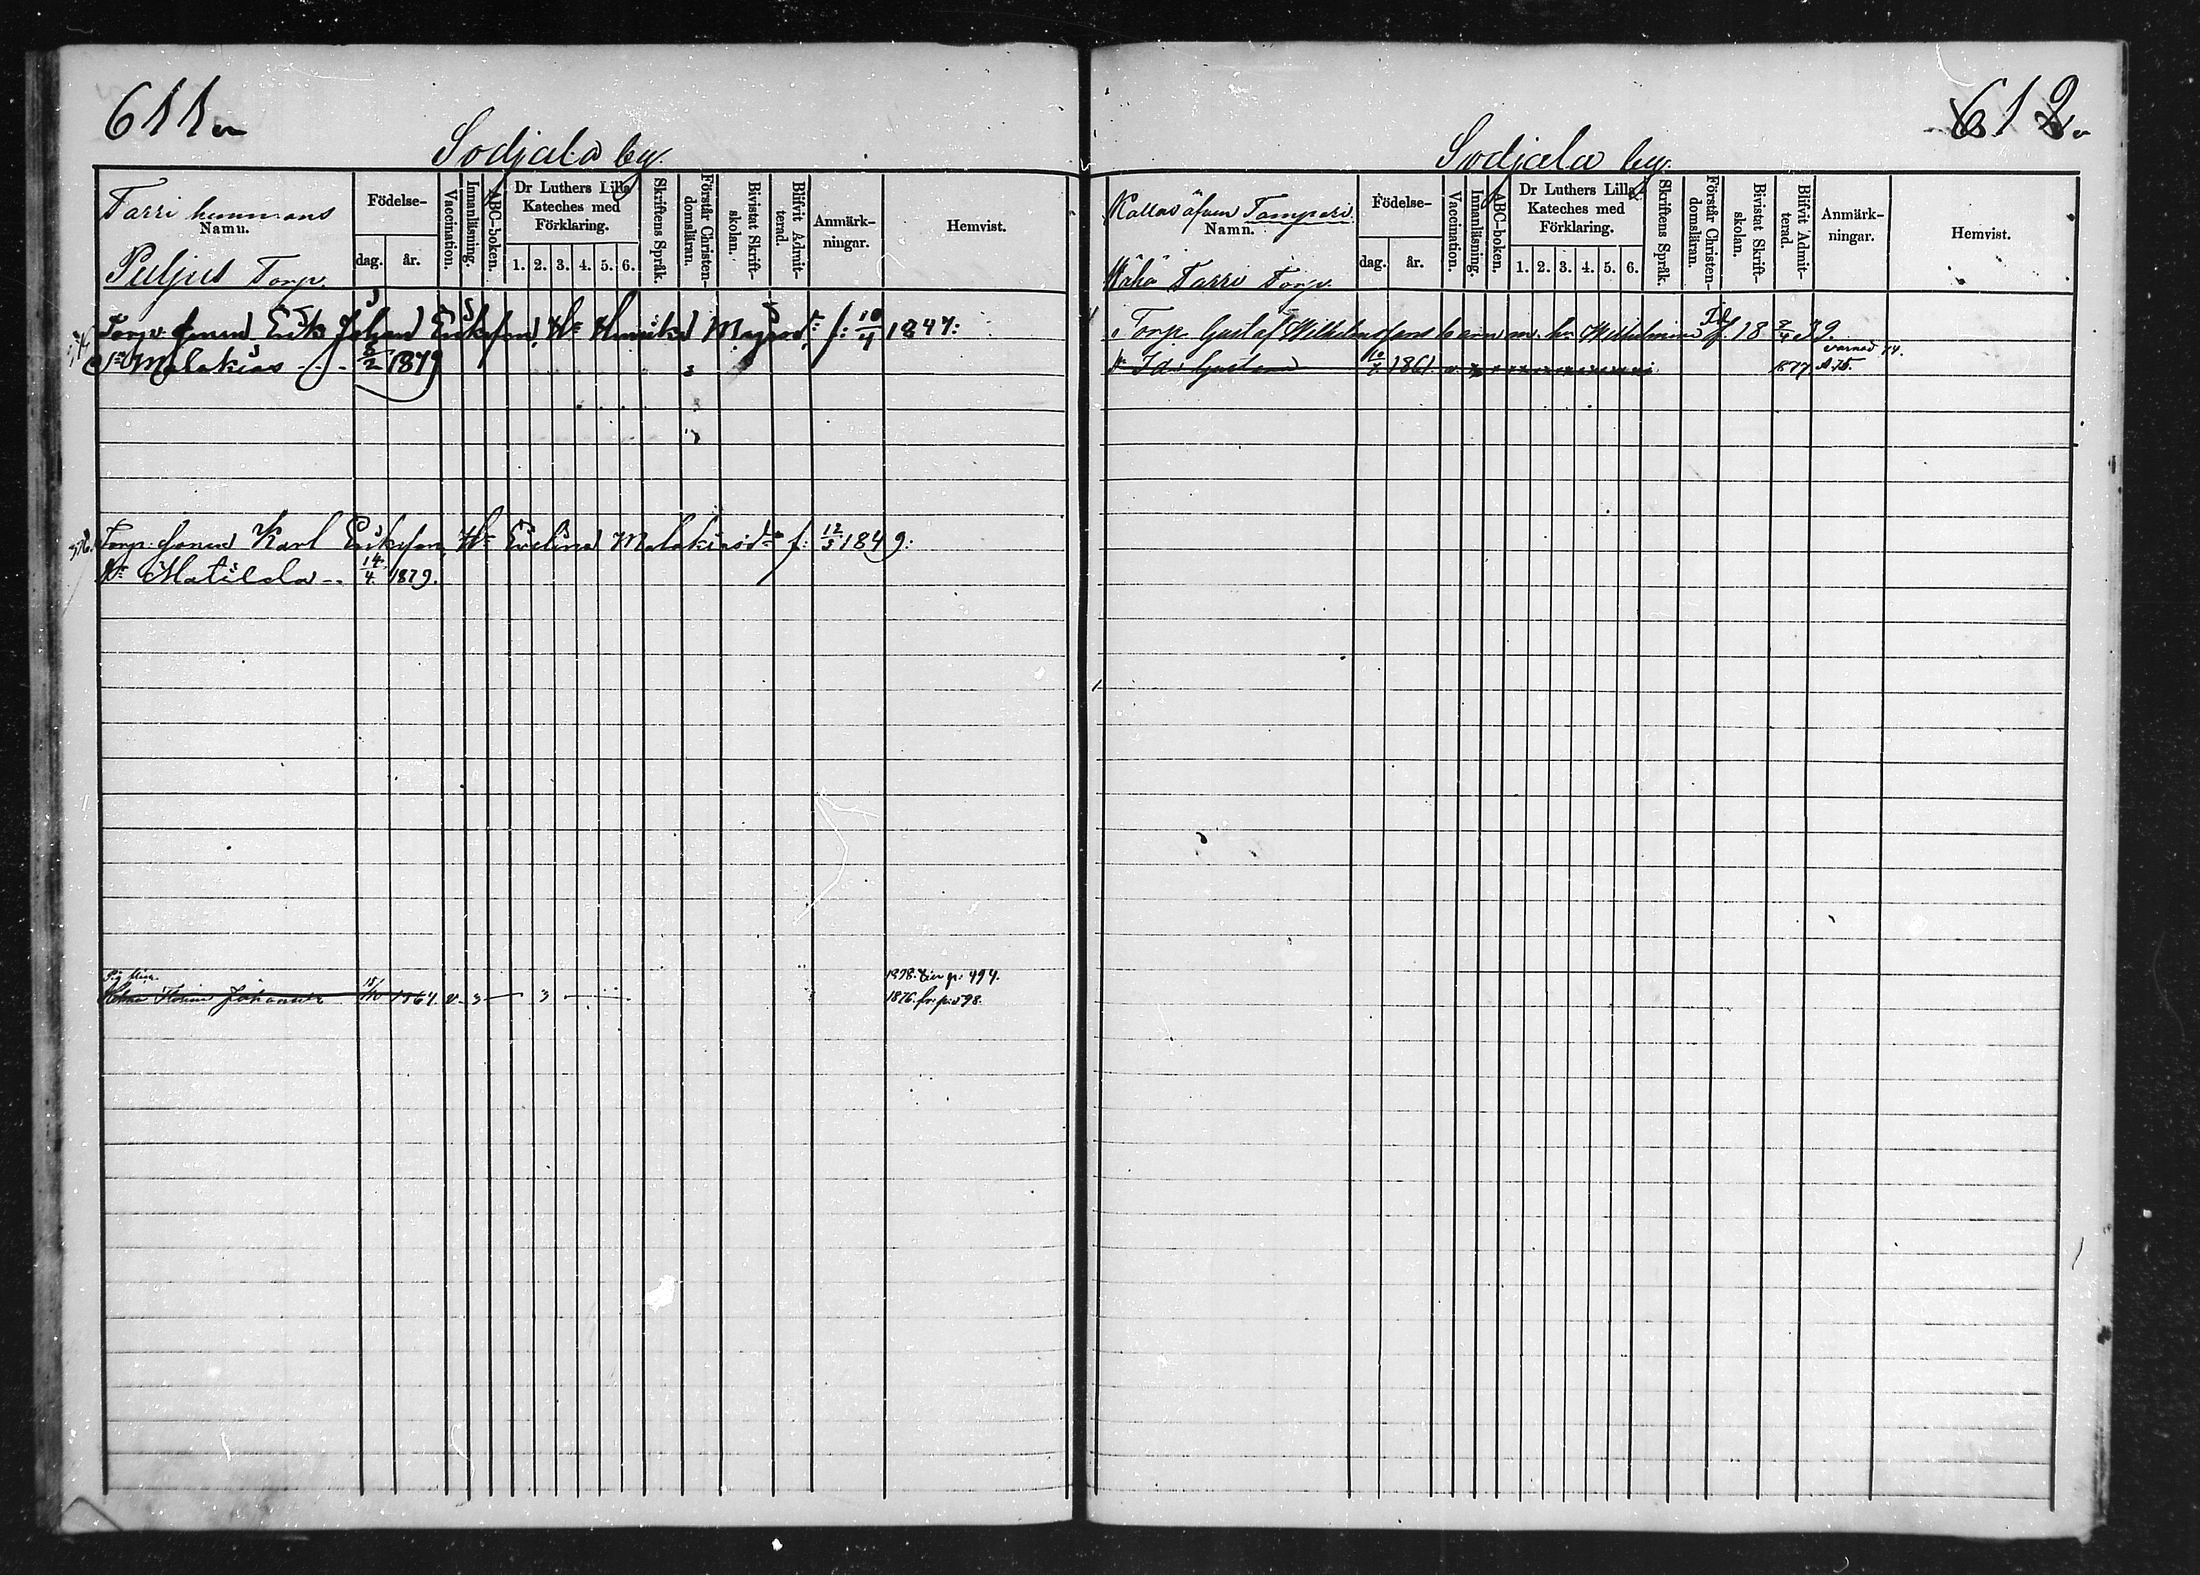 611
Sodjala by.
Tarri hemmans
Namn.
Puljus Torp.
Födelse-
dag. år.
Vaccination.
Innanläsning.
ABC-boken.
Dr Luthers Lilla
Kateches med
Förklaring.
1. 2. 3. 4. 5. 6.
Skriftens Språk.
Förstår Christen-
domsläran.
Bivistat Skrift-
skolan.
Blifvit Admit-
terad.
Anmärk-
ningar.
Hemvist.
Erik Johan Eriksson, Hu Henrika f: 10/4 1847:
Sn Malakias 1879
Torp. Karl Eriksson, Hu Evelina Malakiasdr f: 12/3 1849:
Dr Matilda 14/4 1879.
1878. p: 494.
Johanna 15/10 1864. v 3 3
1876. fr. p: 598.
612.
Sodjala by.
Kallas äfven Tamperi.
Namn.
Wähä Tarri Torp.
Födelse-
dag. år.
Vaccination.
Innanläsning.
ABC-boken.
Dr Luthers Lilla
Kateches med
Förklaring.
1. 2. 3. 4. 5. 6.
Skriftens Språk.
Förstår Christen-
domsläran.
Bivistat Skrift-
skolan.
Blifvit Admit-
terad.
Anmärk-
ningar.
Hemvist.
Torp. Gustaf Wilhelmssons barn m. hu Wilhelmina f. 18 39.
Ida Gustava 1861. v. 1877